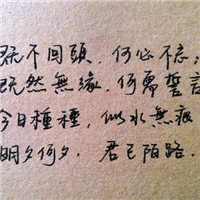 既不回頭，何必不忘；
既然無緣，何需誓言
今日種種，似水無痕
明夕何夕，君已陌路．